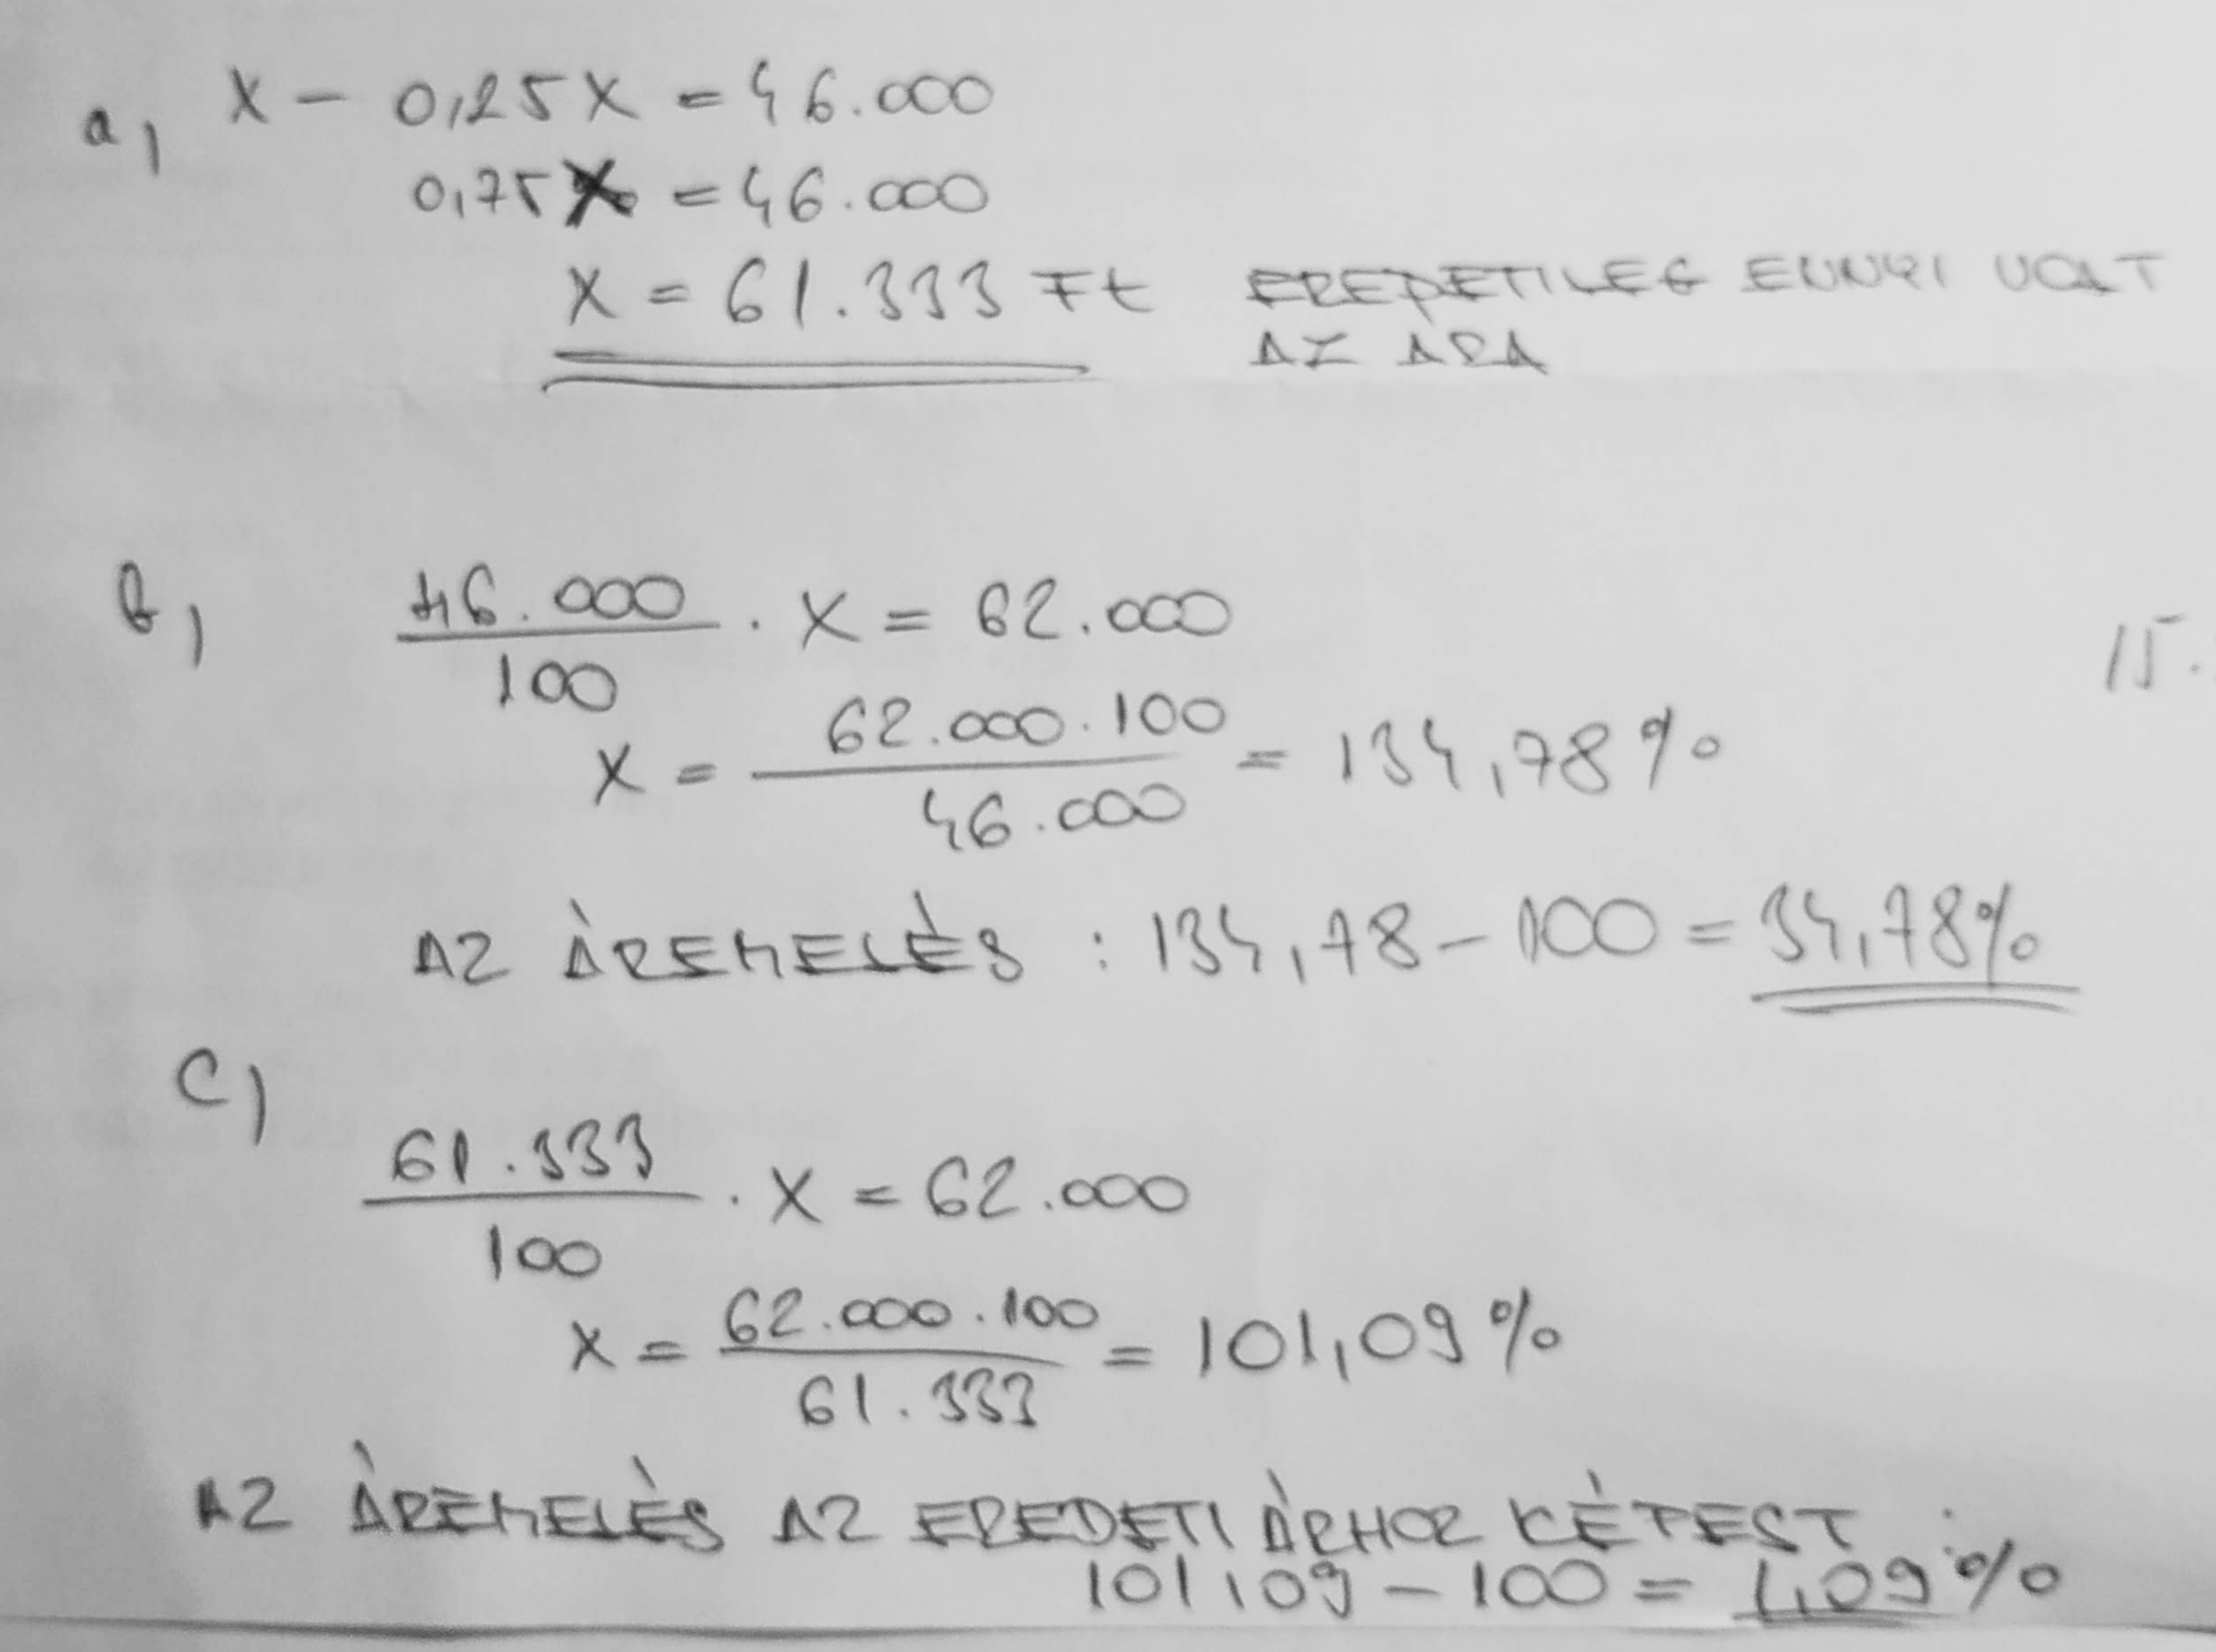 a, X - 0,25X = 46.000
0,75X = 46.000
X = 61.333 Ft EREDETILEG ENNYI VOLT
AZ ÁRA
b, 46.000 / 100 · X = 62.000
15.
X = 62.000 · 100 / 46.000 = 134,78%
AZ ÁREMELÉS : 134,78 - 100 = 34,78%
C, 61.333 / 100 · X = 62.000
X = 62.000 · 100 / 61.333 = 101,09%
AZ ÁREMELÉS AZ EREDETI ÁRHOZ KÉPEST :
101,09 - 100 = 1,09%